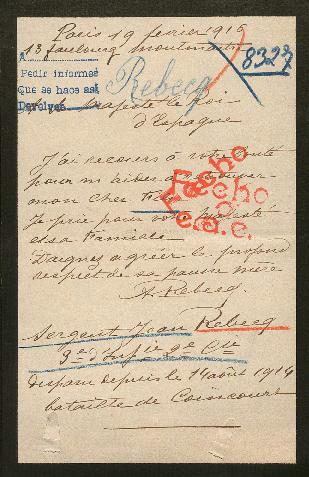 Paris 19 fevrier 1916
13 faubourg montmartre
83227
A
Pedir informes
Que se hace así
Devolver
Rebecq
Sa Majesté le Roi
d'Espagne
J'ai recours à votre bonté
pour m'aider à retrouver
mon cher fils
Je prie pour votre majesté
et sa Famille
Daignez agréer le profond
respect de sa pauvre mère
A. Rebecq
Fecho
Fecho
e.a.e.
Sergent Jean Rebecq
3e d'Infie 9e Cie
disparu depuis le 14 août 1914
bataille de Coincourt